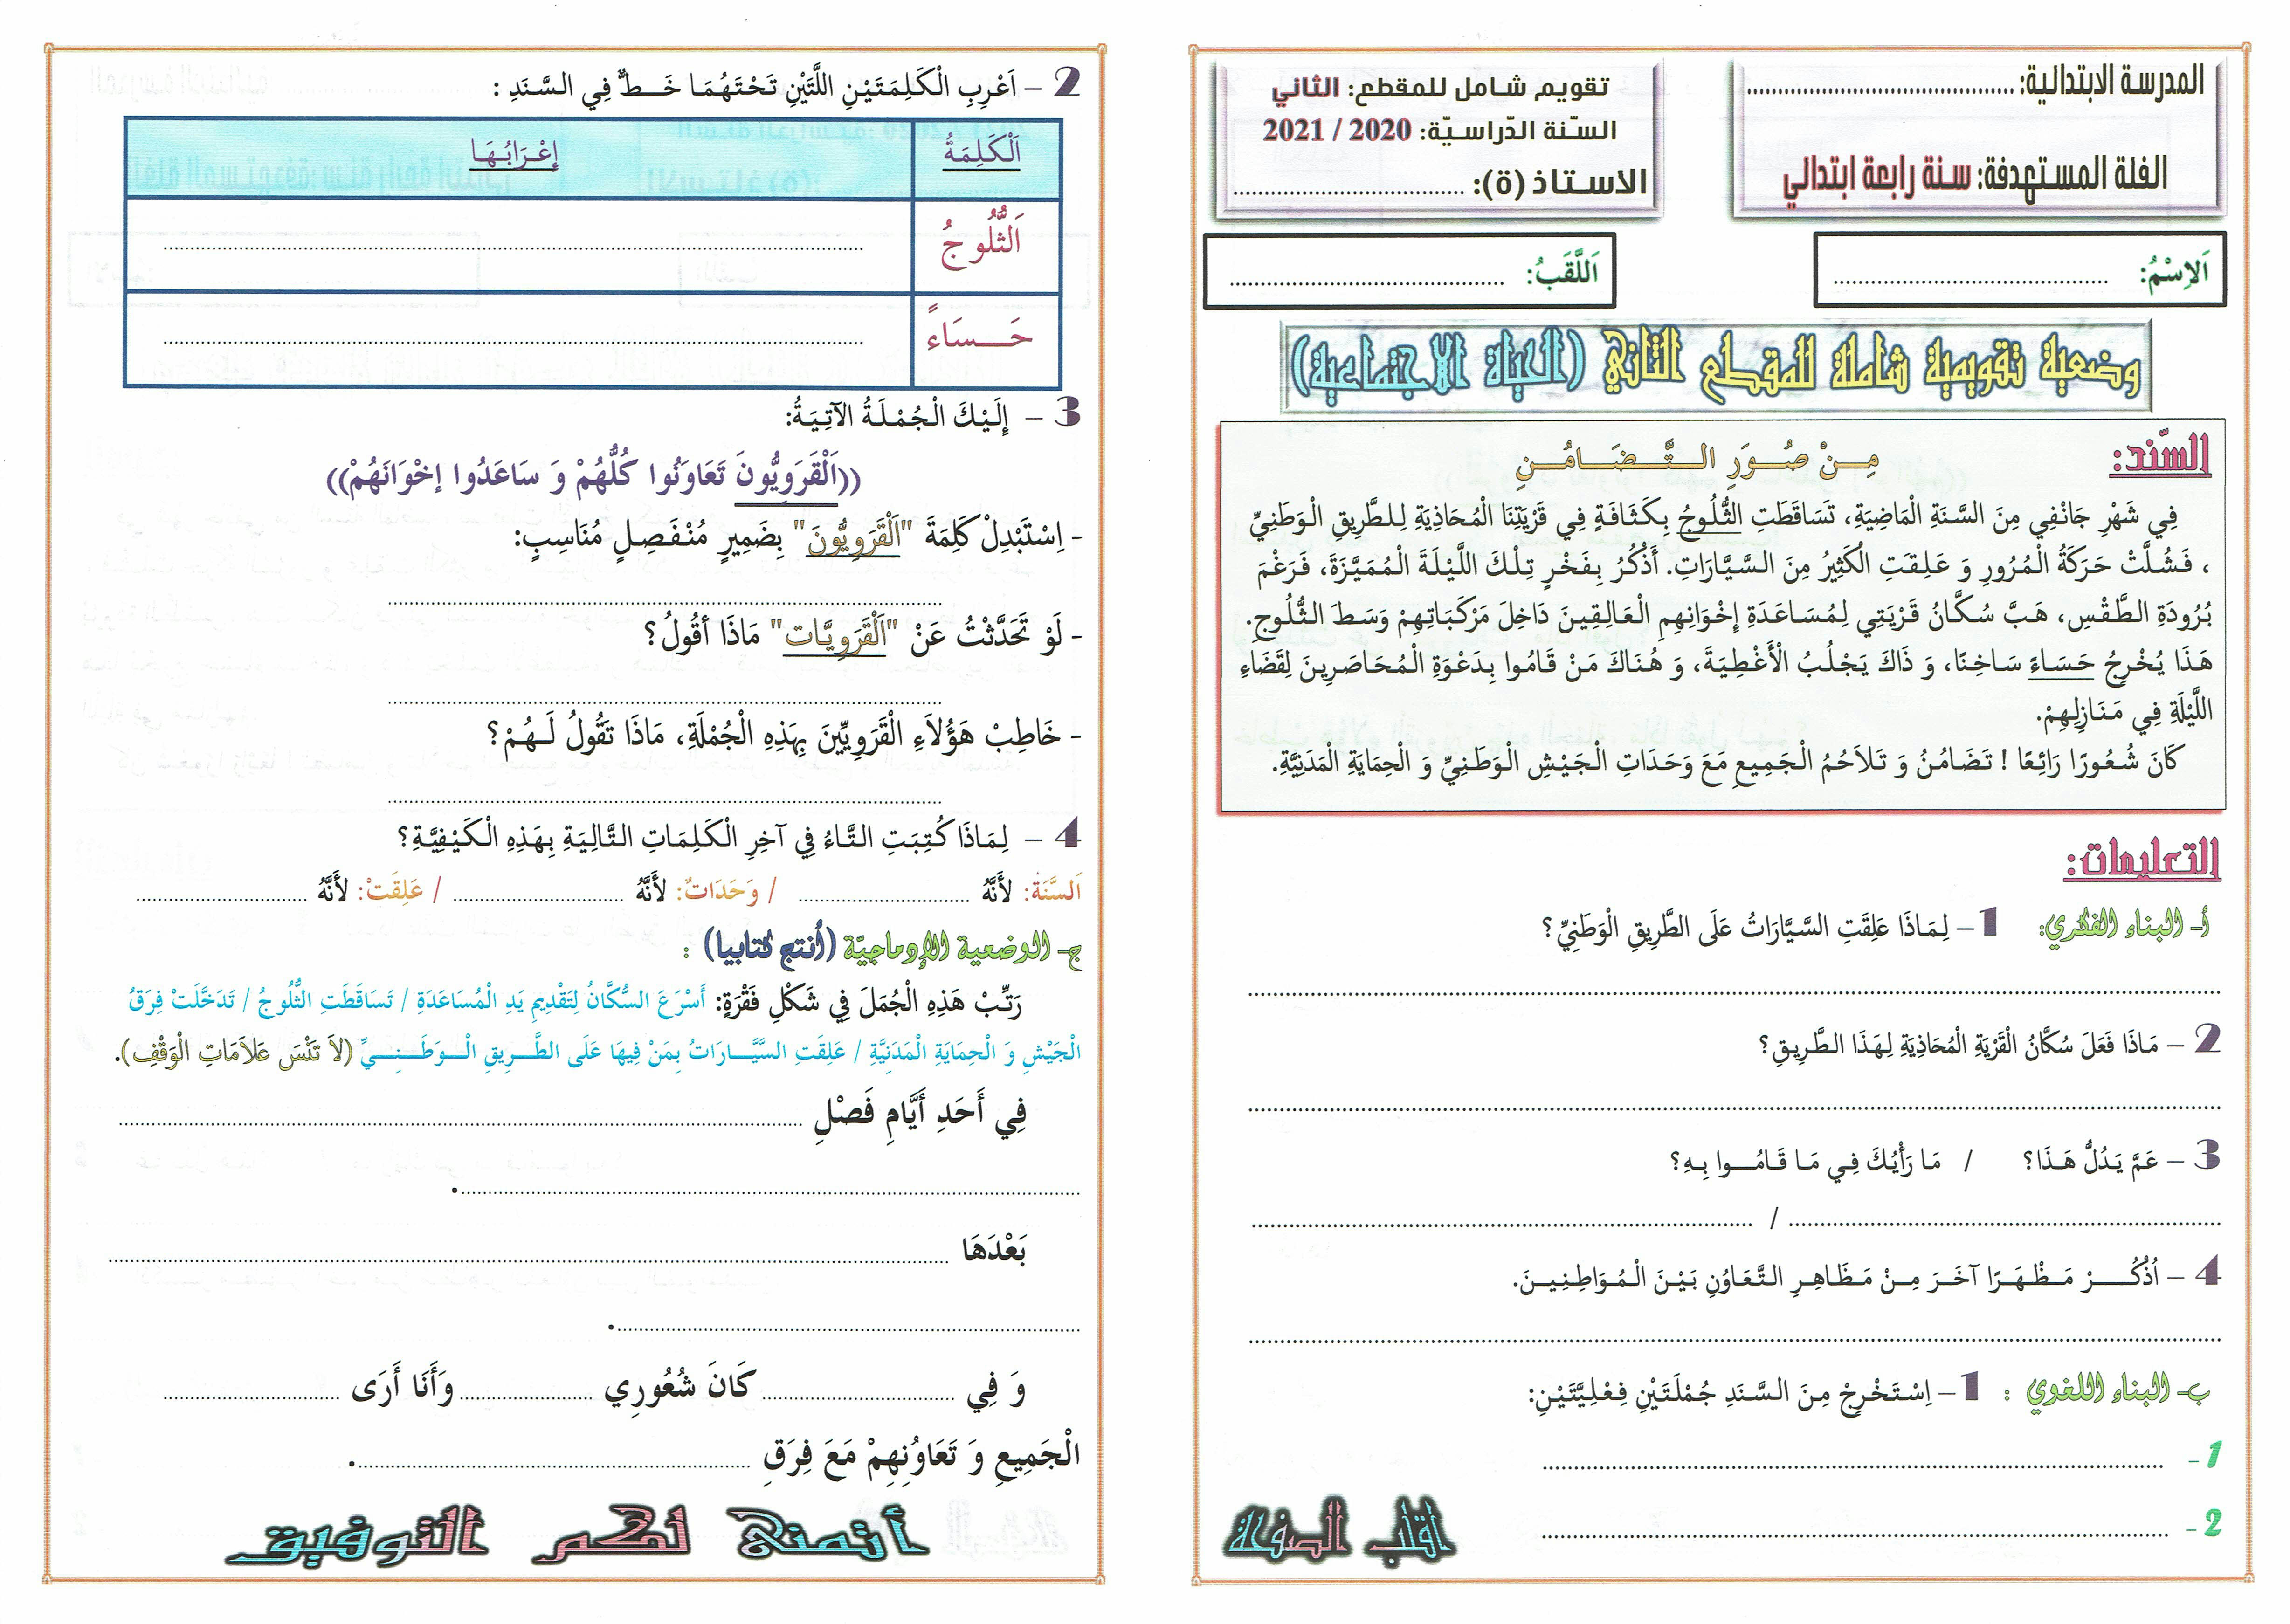 المدرسة الابتدائية: ........................................
الفئة المستهدفة: سنة رابعة ابتدائي
تقويم شامل للمقطع: الثاني
السّنة الدّراسيّة: 2020 / 2021
الاستاذ (ة): ........................................
اَلاِسْمُ: ........................................
اَللَّقَبُ: ........................................
وضعية تقويمية شاملة للمقطع الثاني (الحياة الاجتماعية)
السّند:
مِـنْ صُـوَرِ الـتَّـضَـامُـنِ
فِي شَهْرِ جَانْفِي مِنَ السَّنَةِ الْمَاضِيَةِ، تَسَاقَطَتِ الثُّلُوجُ بِكَثَافَةٍ فِي قَرْيَتِنَا الْمُحَاذِيَةِ لِلطَّرِيقِ الْوَطَنِيِّ
، فَشُلَّتْ حَرَكَةُ الْمُرُورِ وَ عَلِقَتِ الْكَثِيرُ مِنَ السَّيَّارَاتِ. أَذْكُرُ بِفَخْرٍ تِلْكَ اللَّيْلَةَ الْمُمَيَّزَةَ، فَرَغْمَ
بُرُودَةِ الطَّقْسِ، هَبَّ سُكَّانُ قَرْيَتِي لِمُسَاعَدَةِ إِخْوَانِهِمِ الْعَالِقِينَ دَاخِلَ مَرْكَبَاتِهِمْ وَسَطَ الثُّلُوجِ.
هَذَا يُخْرِجُ حَسَاءً سَاخِنًا، وَ ذَاكَ يَجْلُبُ الْأَغْطِيَةَ، وَ هُنَاكَ مَنْ قَامُوا بِدَعْوَةِ الْمُحَاصَرِينَ لِقَضَاءِ
اللَّيْلَةِ فِي مَنَازِلِهِمْ.
كَانَ شُعُورًا رَائِعًا ! تَضَامُنُ وَ تَلَاحُمُ الْجَمِيعِ مَعَ وَحَدَاتِ الْجَيْشِ الْوَطَنِيِّ وَ الْحِمَايَةِ الْمَدَنِيَّةِ.
التعليمات:
أ- البناء الفكري: 1 – لِمَاذَا عَلِقَتِ السَّيَّارَاتُ عَلَى الطَّرِيقِ الْوَطَنِيِّ؟
........................................
2 – مَاذَا فَعَلَ سُكَّانُ الْقَرْيَةِ الْمُحَاذِيَةِ لِهَذَا الطَّرِيقِ؟
........................................
3 – عَمَّ يَدُلُّ هَذَا؟ / مَا رَأْيُكَ فِي مَا قَامُـوا بِهِ؟
........................................ / ........................................
4 – اُذْكُـرْ مَظْهَرًا آخَرَ مِنْ مَظَاهِرِ التَّعَاوُنِ بَيْنَ الْمُوَاطِنِينَ.
........................................
ب- البناء اللغوي : 1 – اِسْتَخْرِجْ مِنَ السَّنَدِ جُمْلَتَيْنِ فِعْلِيَّتَيْنِ:
1 - ........................................
2 - ........................................
اقلب الصفحة
2 – اَعْرِبِ الْكَلِمَتَيْنِ اللَّتَيْنِ تَحْتَهُمَا خَـطٌّ فِي السَّنَدِ :
اَلْكَلِمَةُ إِعْـرَابُـهَـا
اَلثُّلُوجُ ........................................
حَـسَاءً ........................................
3 – إِلَيْكَ الْجُمْلَةُ الآتِيَةُ:
((اَلْقَرَوِيُّونَ تَعَاوَنُوا كُلُّهُمْ وَ سَاعَدُوا إخْوَانَهُمْ))
- اِسْتَبْدِلْ كَلِمَةَ "اَلْقَرَوِيُّونَ" بِضَمِيرٍ مُنْفَصِلٍ مُنَاسِبٍ:
........................................
- لَوْ تَحَدَّثْتُ عَنْ "اَلْقَرَوِيَّات" مَاذَا أقُولُ؟
........................................
- خَاطِبْ هَؤُلاَءِ الْقَرَوِيِّينَ بِهَذِهِ الْجُمْلَةِ، مَاذَا تَقُولُ لَـهُمْ؟
........................................
4 – لِمَاذَا كُتِبَتِ التَّاءُ فِي آخِرِ الْكَلِمَاتِ التَّالِيَةِ بِهَذِهِ الْكَيْفِيَّةِ؟
اَلسَّنَةَ: لأَنَّهُ .................... / وَحَدَاتٌ: لأَنَّهُ .................... / عَلِقَتْ: لأَنَّهُ ....................
ج- الوضعية الإدماجيّة (أنتج كتابيا) :
رَتِّبْ هَذِهِ الْجُمَلَ فِي شَكْلِ فَقْرَةٍ: أَسْرَعَ السُّكَّانُ لِتَقْدِيمِ يَدِ الْمُسَاعَدَةِ / تَسَاقَطَتِ الثُّلُوجُ / تَدَخَّلَتْ فِرَقُ
الْجَيْشِ وَ الْحِمَايَةِ الْمَدَنِيَّةِ / عَلِقَتِ السَّيَّـارَاتُ بِمَنْ فِيهَا عَلَى الطَّـرِيقِ الْـوَطَـنِـيِّ (لاَ تَنْسَ عَلاَمَاتِ الْوَقْفِ).
فِي أَحَدِ أَيَّامِ فَصْلِ ........................................
.........................................
بَعْدَهَا ........................................
.........................................
وَ فِي .................... كَانَ شُعُورِي .................... وَأَنَا أَرَى ....................
الْجَمِيعِ وَ تَعَاوُنِهِمْ مَعَ فِرَقِ ........................................ .
أتمنى لكم التوفيق